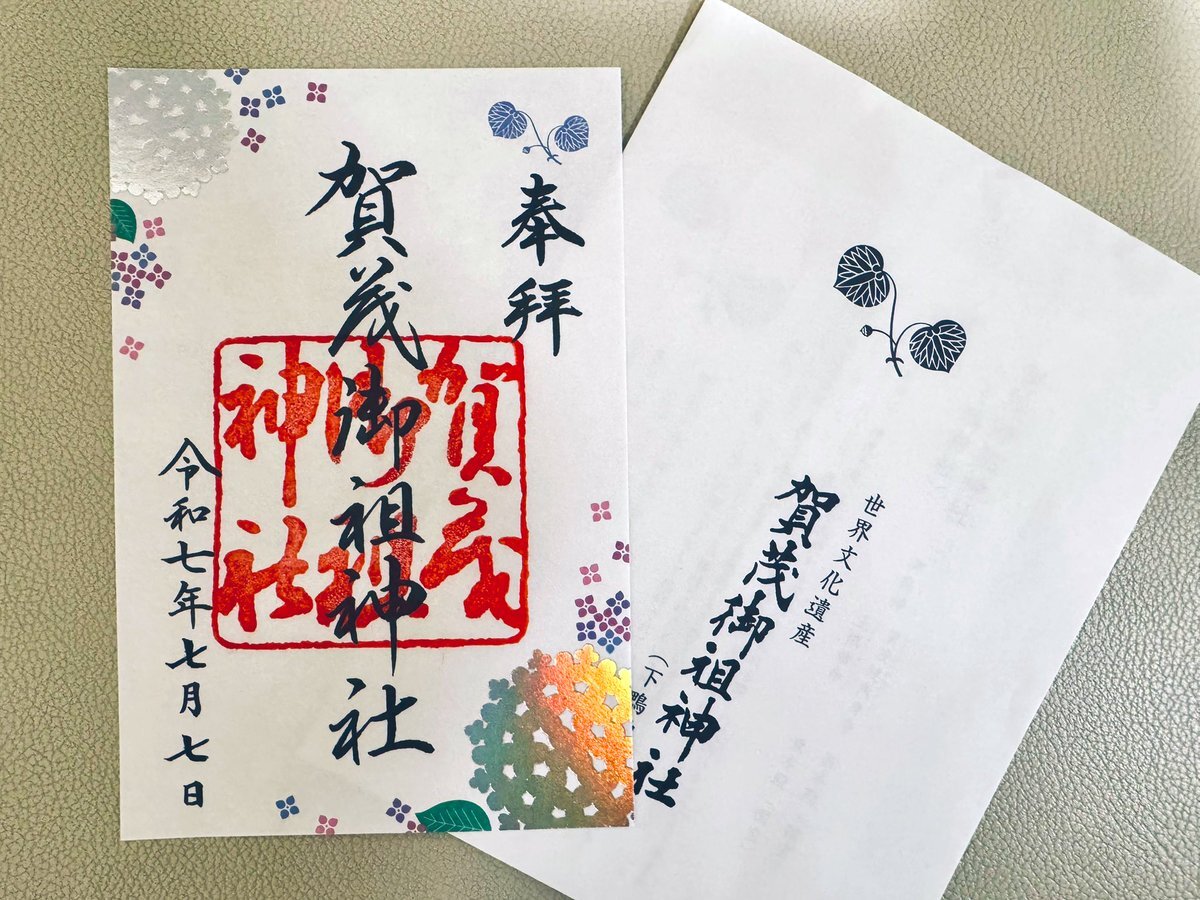 奉拝
賀茂御祖神社
賀茂
御祖
神社
令和七年七月七日
世界文化遺産
賀茂御祖神社
（下鴨